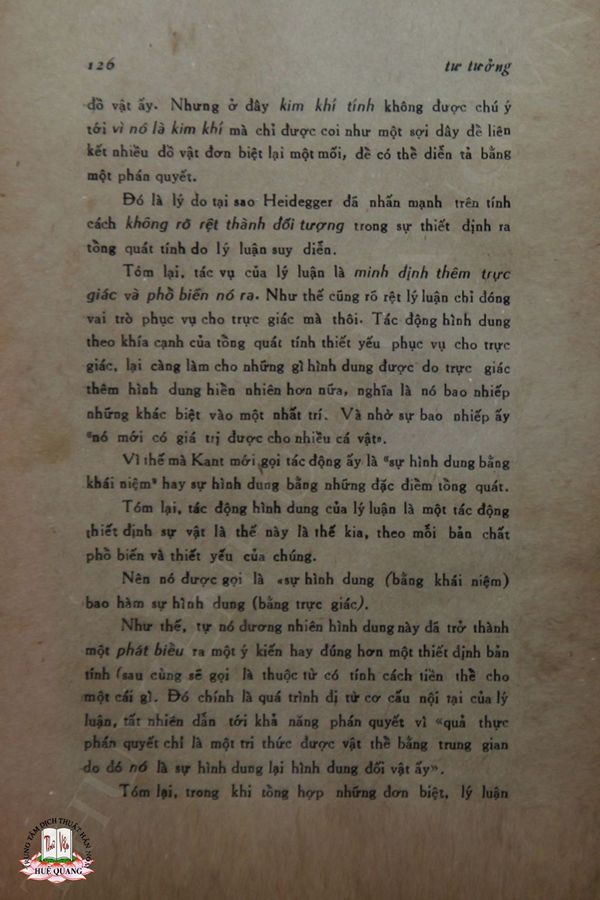 126 tư tưởng
đồ vật ấy. Nhưng ở đây kim khí tính không được chú ý
tới vì nó là kim khí mà chỉ được coi như một sợi dây để liên
kết nhiều đồ vật đơn biệt lại một mối, để có thể diễn tả bằng
một phán quyết.
Đó là lý do tại sao Heidegger đã nhấn mạnh trên tính
cách không rõ rệt thành đối tượng trong sự thiết định ra
tổng quát tính do lý luận suy diễn.
Tóm lại, tác vụ của lý luận là minh định thêm trực
giác và phổ biến nó ra. Như thế cũng rõ rệt lý luận chỉ đóng
vai trò phục vụ cho trực giác mà thôi. Tác động hình dung
theo khía cạnh của tổng quát tính thiết yếu phục vụ cho trực
giác, lại càng làm cho những gì hình dung được do trực giác
thêm hình dung hiển nhiên hơn nữa, nghĩa là nó bao nhiếp
những khác biệt vào một nhất trí. Và nhờ sự bao nhiếp ấy
“nó mới có giá trị được cho nhiều cá vật».
Vì thế mà Kant mới gọi tác động ấy là “sự hình dung bằng
khái niệm” hay sự hình dung bằng những đặc điểm tổng quát.
Tóm lại, tác động hình dung của lý luận là một tác động
thiết định sự vật là thế này là thế kia, theo mỗi bản chất
phổ biến và thiết yếu của chúng.
Nên nó được gọi là «sự hình dung (bằng khái niệm)
bao hàm sự hình dung (bằng trực giác).
Như thế, tự nó đương nhiên hình dung này đã trở thành
một phát biểu ra một ý kiến hay đúng hơn một thiết định bản
tính (sau cùng sẽ gọi là thuộc từ có tính cách tiền thể cho
một cái gì. Đó chính là quá trình dị từ cơ cấu nội tại của lý
luận, tất nhiên dẫn tới khả năng phán quyết vì «quả thực
phán quyết chỉ là một tri thức được vật thể bằng trung gian
do đó nó là sự hình dung lại hình dung đối vật ấy».
Tóm lại, trong khi tổng hợp những đơn biệt, lý luận
TRUNG TÂM DỊCH THUẬT HÁN NÔM
HUỆ QUANG